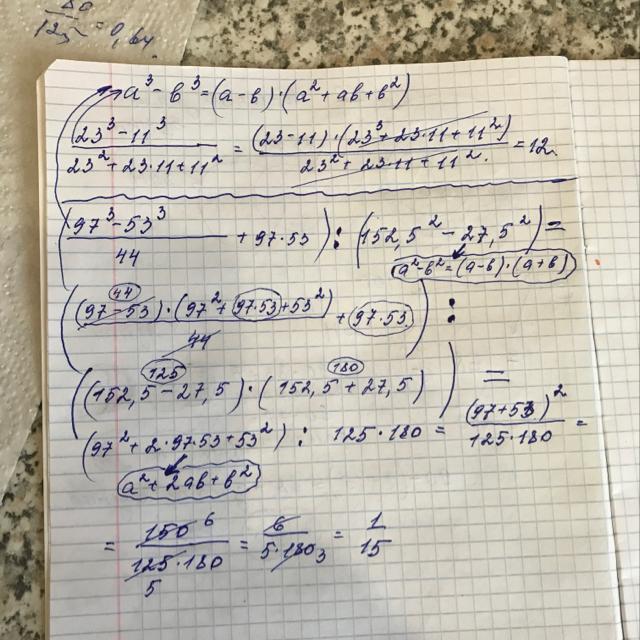 20/125 = 0,64
a³ - b³ = (a-b)·(a² + ab + b²)
(23³ - 11³)/(23² + 23·11 + 11²) = (23-11)·(23³ + 23·11 + 11²)/(23² + 23·11 + 11²) = 12
((97³ - 53³)/44 + 97·53) : (152,5² - 27,5²) =
a² - b² = (a-b)·(a+b)
44
((97 - 53)·(97² + 97·53 + 53²)/44 + 97·53) :
125 180
((152,5 - 27,5)·(152,5 + 27,5)) =
(97² + 2·97·53 + 53²) : 125·180 = (97+53)²/(125·180) =
a² + 2ab + b²
= 150 6/(125·180) = 6/(5·180 3) = 1/15
5